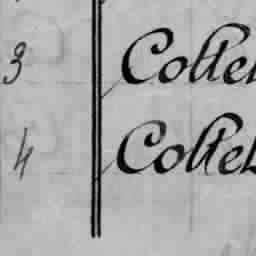 3 Coltel
4 Coltel